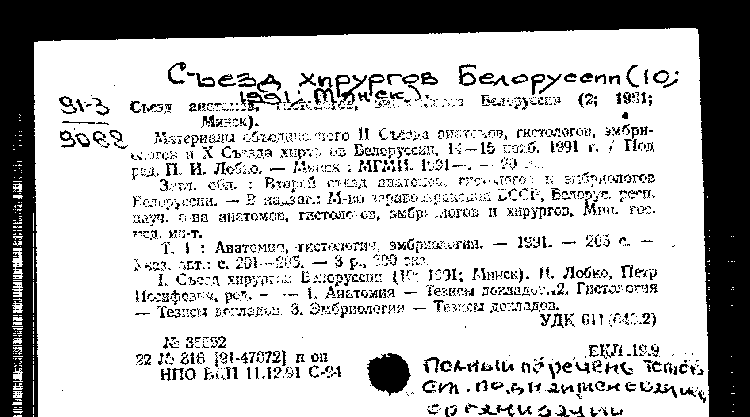 Съезд хирургов Белоруссии (10;
1991; Минск).
91-3
9082
Съезд анатомов, гистологов, Белоруссии (2; 1991;
Минск).
Материалы объединенного II Съезда анатомов, гистологов, эмбри-
ологов и X Съезда хирургов Белоруссии, 14—15 1991 г. / Под
ред. П. И. Лобко. — Минск : МГМИ, 1991—. — 20
Загл. обл. : Второй съезд анатомов, гистологов и эмбриологов
Белоруссии. — В надзаг.: М-во здравоохранения БССР, Белорус. респ.
науч. о-ва анатомов, гистологов, эмбриологов и хирургов, Мин. гос.
мед. ин-т.
Т. 1 : Анатомия, гистология, эмбриология. — 1991. — 205 с. —
Указ. авт.: с. 201—205. — 3 р., экз.
I. Съезд хирургов Белоруссии (10; 1991; Минск). II. Лобко, Петр
Иосифович, ред. — — 1. Анатомия — Тезисы докладов. 2. Гистология
— Тезисы докладов. 3. Эмбриология — Тезисы докладов.
УДК 611(048.2)
№ 35592
22 № 816 [91-47072] п оп
НПО ВКП 11.12.91 С-94
ЕКЛ 19.9
Полный перечень
ст. под
организации